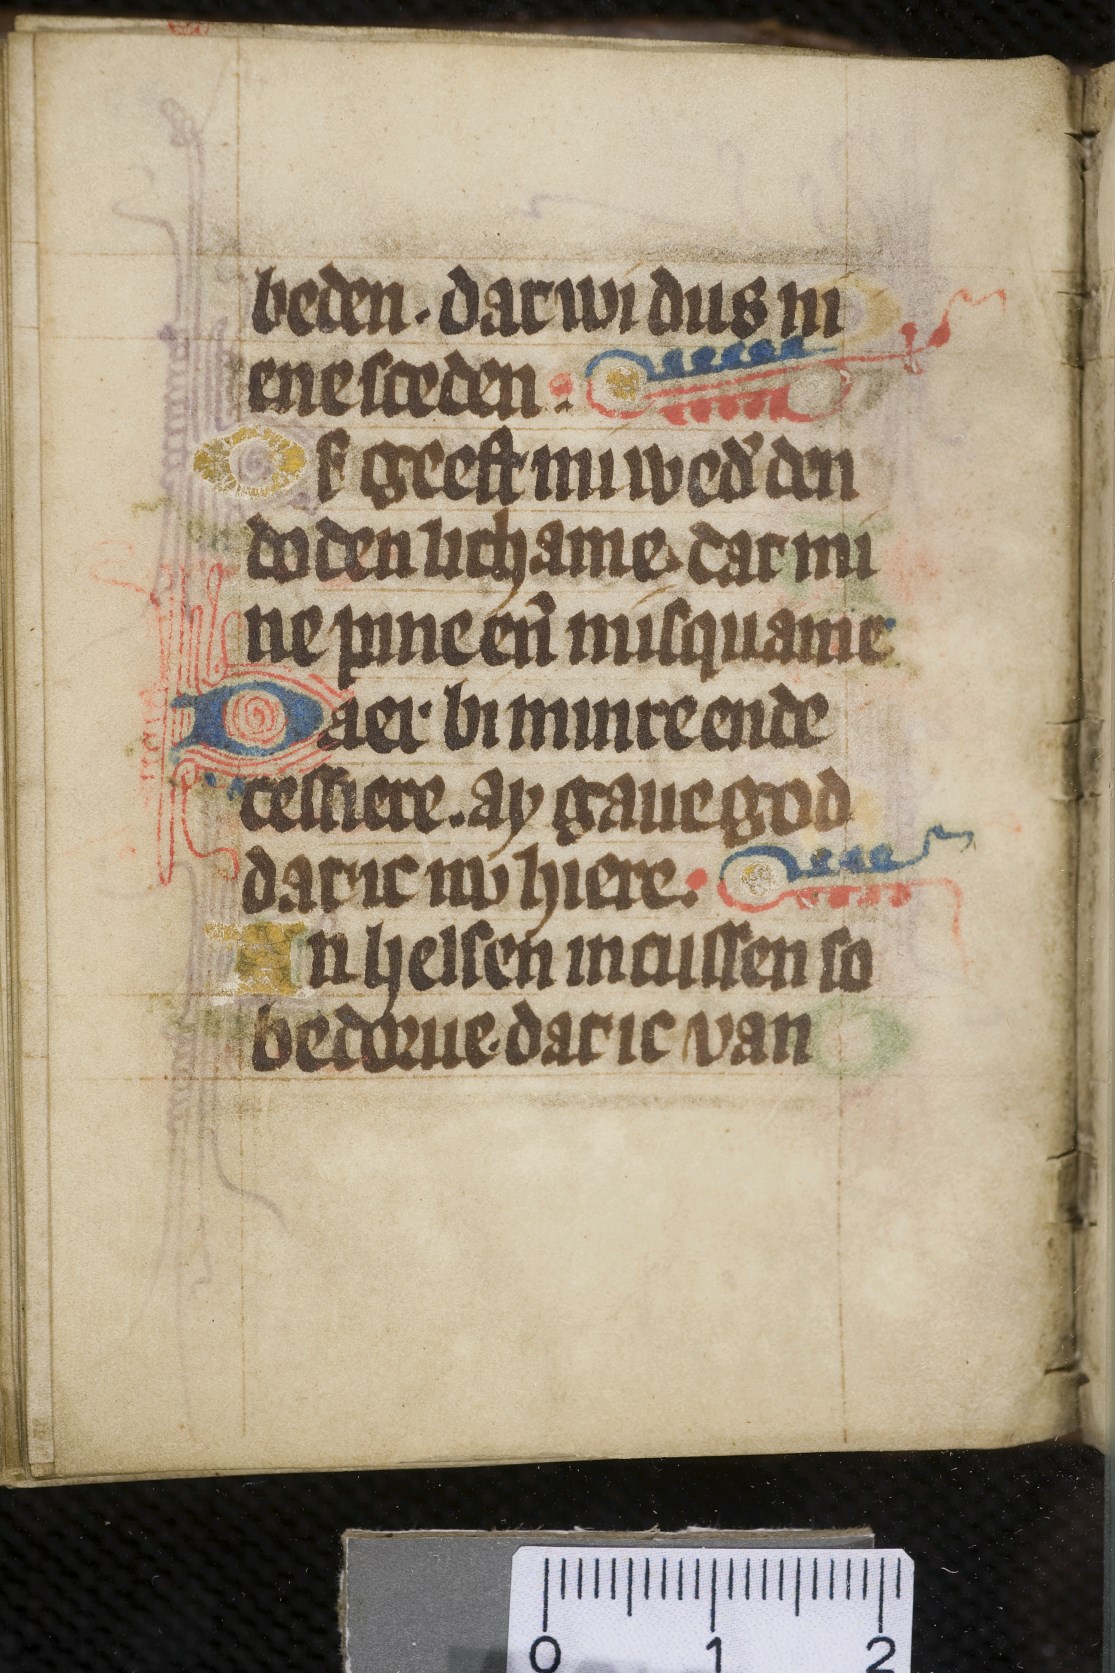 beden. dat wi dus in
enesceden.
Of geeft mi wed' den
doden lichame. dat mi
ne pine en̄ misquame
Daer bi minre ende
tessiere. ay gaue god
dat ic nv hiere.
In helsen in cussen so
bedorue. dat ic van
0 1 2